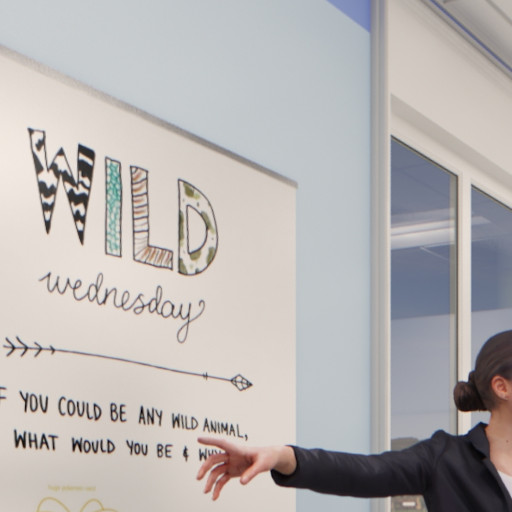 WILD
wednesday
IF YOU COULD BE ANY WILD ANIMAL,
WHAT WOULD YOU BE & WHY